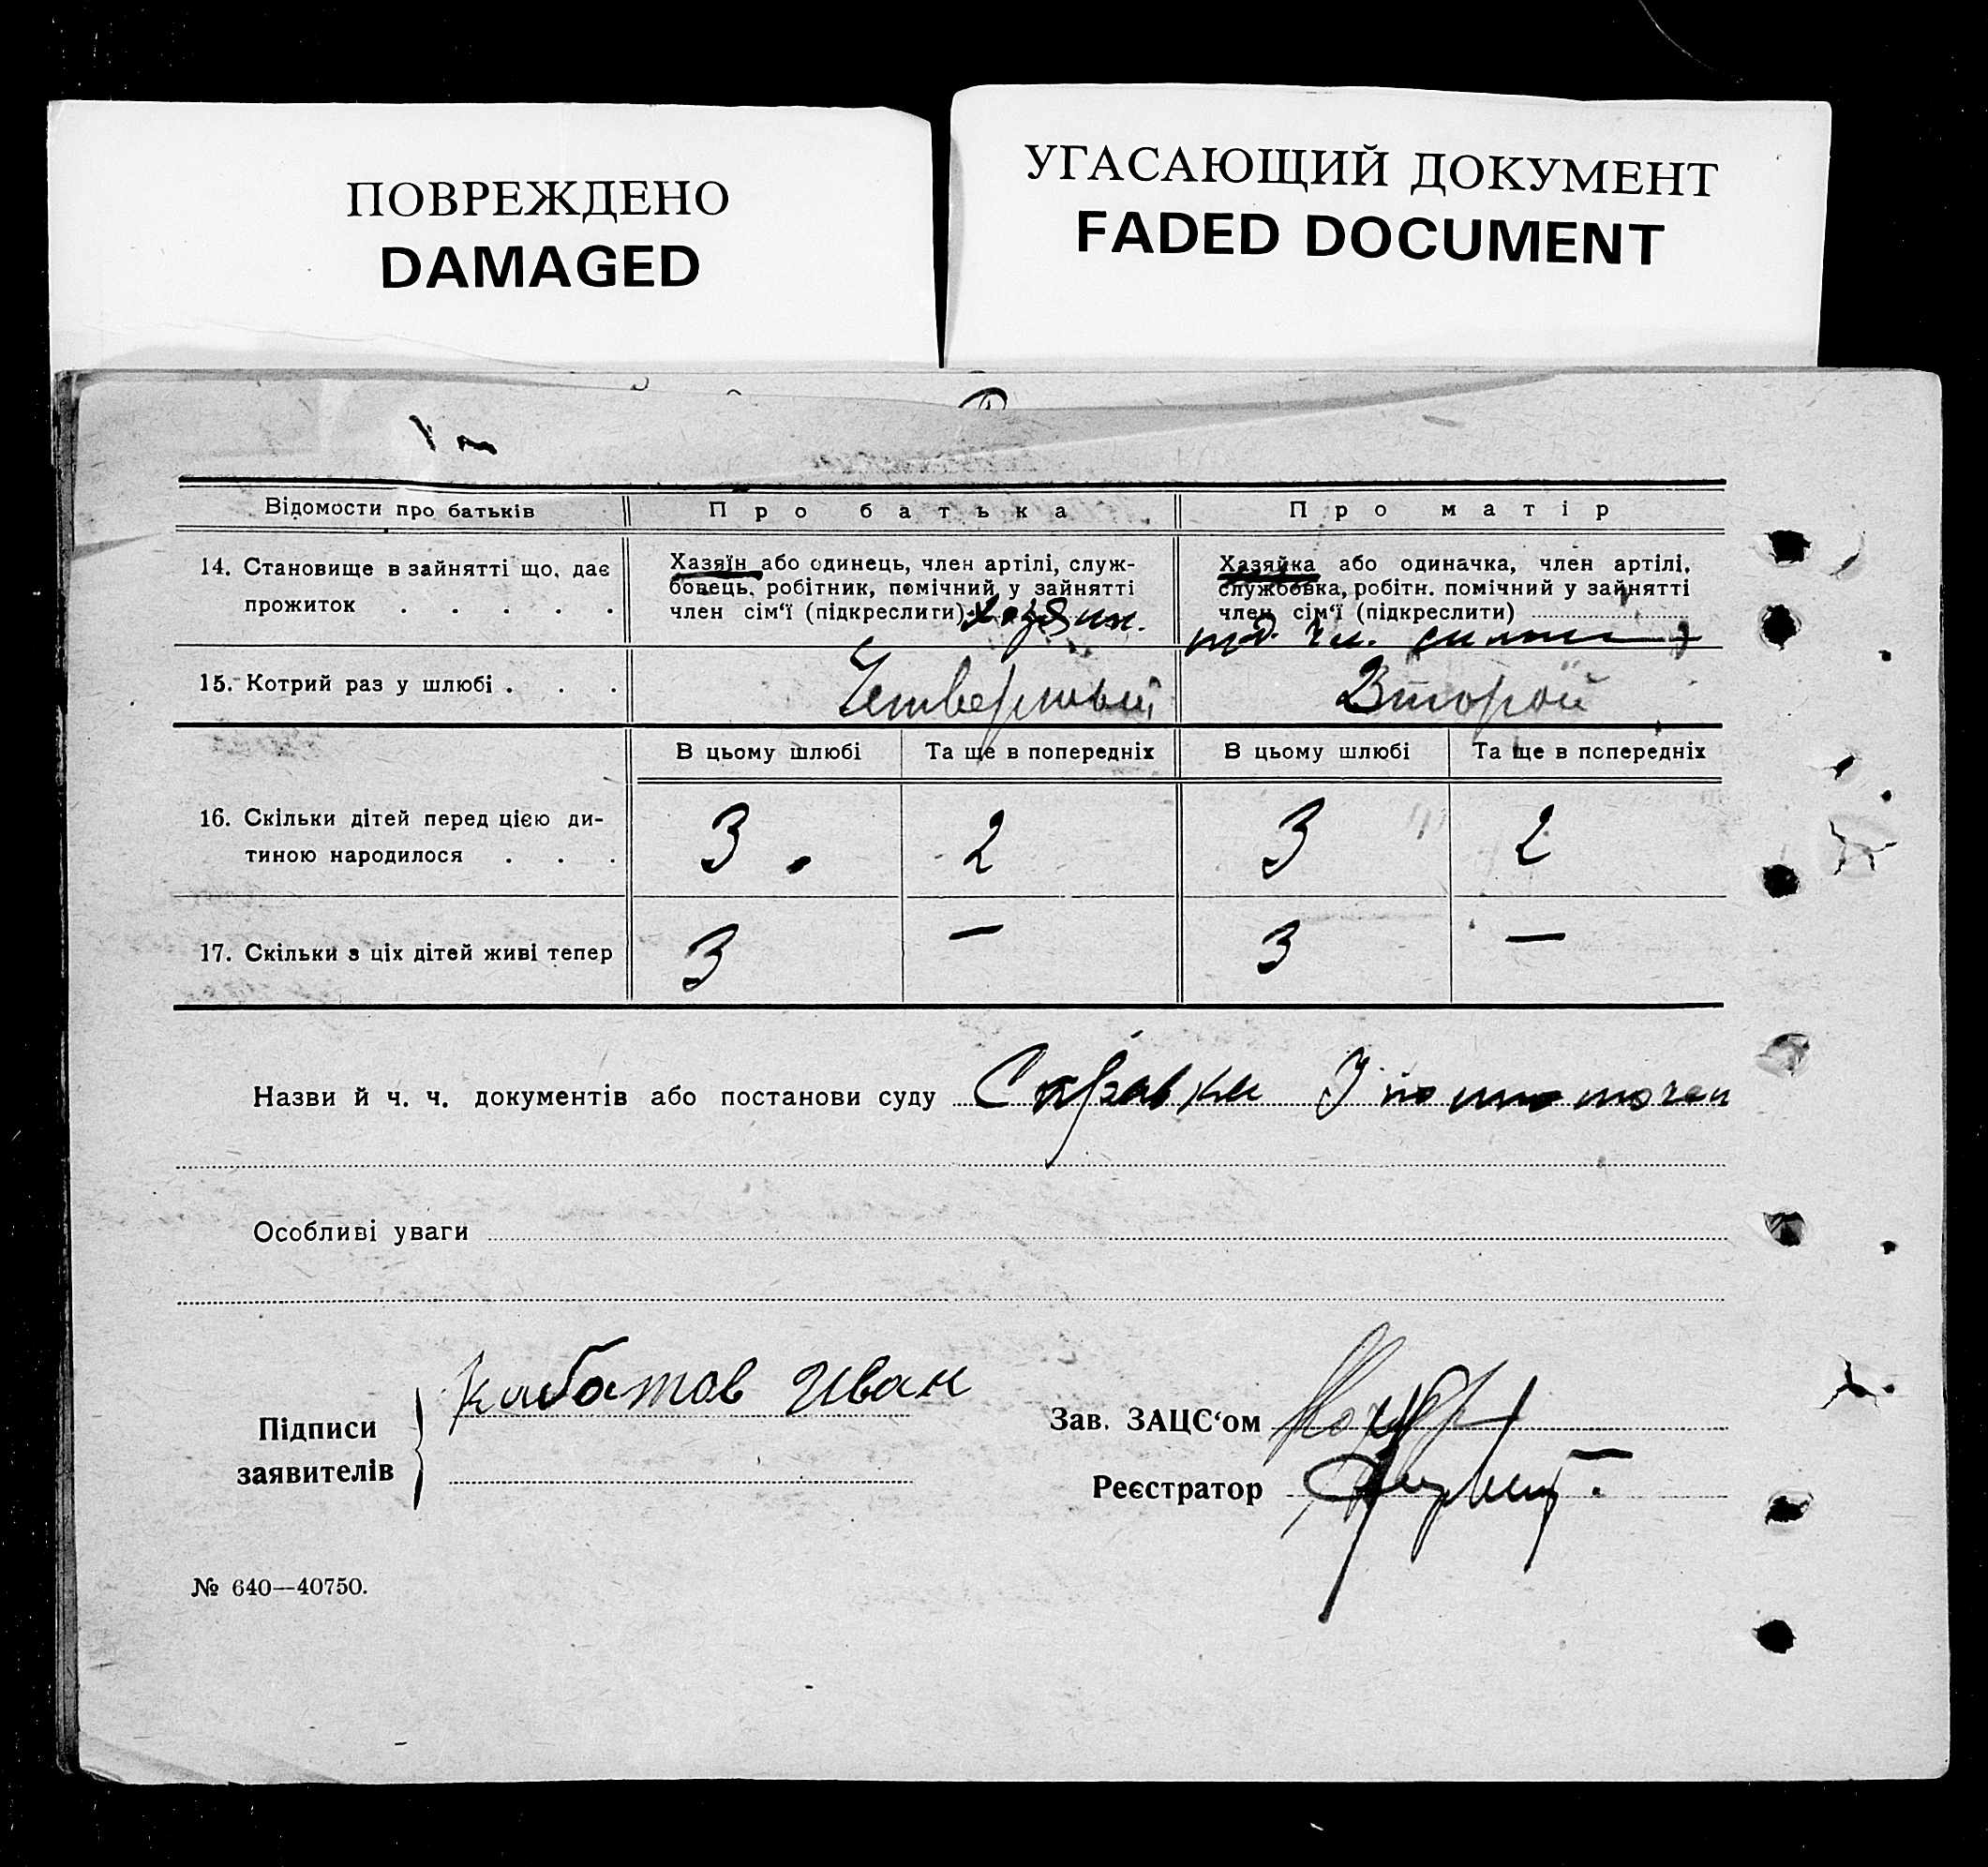 ПОВРЕЖДЕНО
DAMAGED
УГАСАЮЩИЙ ДОКУМЕНТ
FADED DOCUMENT
Відомости про батьків
Про батька
Про матір
14. Становище в зайнятті що, дає
прожиток . . . . .
Хазяїн або одинець, член артілі, служ-
бовець, робітник, помічний у зайнятті
член сім'ї (підкреслити) хозяин.
Хазяйка або одиначка, член артілі,
службовка, робітн. помічний у зайнятті
член сім'ї (підкреслити)
15. Котрий раз у шлюбі . . .
Четвертый
Второй
В цьому шлюбі
Та ще в попередніх
В цьому шлюбі
Та ще в попередніх
16. Скільки дітей перед цією ди-
тиною народилося . . .
3. 2 3 2
17. Скільки з ціх дітей живі тепер
3 — 3 —
Назви й ч. ч. документів або постанови суду Справка
Особливі уваги
Підписи
заявителів
Кабатов Иван
Зав. ЗАЦС'ом
Реєстратор
№ 640—40750.